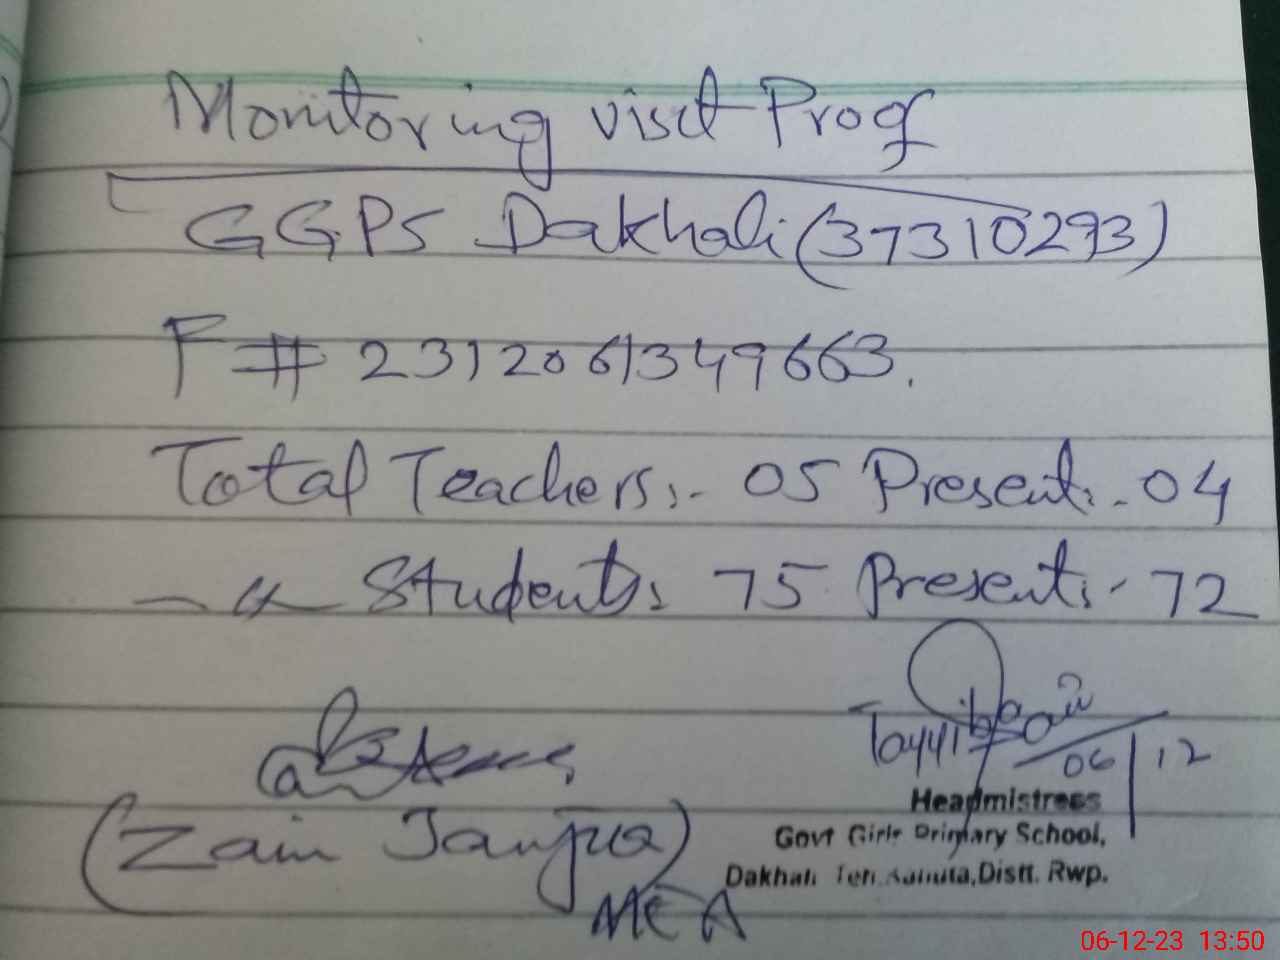 Monitoring visit Prof
GGPS Dakhali (37310293)
F# 231206134９663.
Total Teachers:- 05 Present:- 04
-〃- Students: 75 Present:- 72
Tayyiba
06/12
(Zain Janjua)
MEA
Headmistress
Govt Girls Primary School,
Dakhali Teh. Distt. Rwp.
06-12-23 13:50